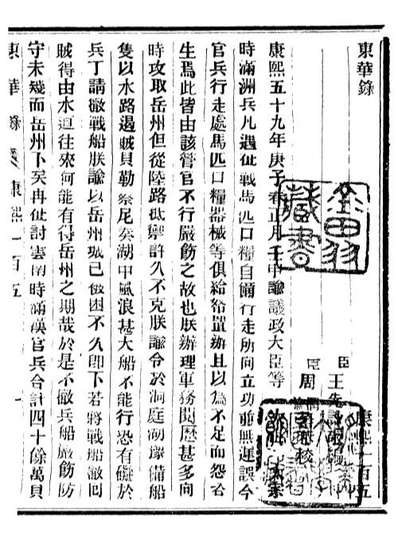 東華錄 康熙一百五
臣王先
臣周 校
康熙五十九年庚子春正月壬申諭議政大臣等
時滿洲兵凡遇征戰馬匹口糧自備行走所向立功並無遲誤今
官兵行走處馬匹口糧器械等俱給 置辦且以為不足而怨咨
生焉此皆由該管官不行嚴飭之故也朕辦理軍務閱歷甚多向
時攻取岳州但從陸路抵禦許久不克朕諭令於洞庭湖豫備船
隻以水路遏賊貝勒察尼奏湖中風浪甚大船不能行恐有礙於
兵丁請撤戰船朕諭以岳州城已極困不久卽下若將戰船撤回
賊得由水道往來何能有得岳州之期哉於是不撤兵船嚴飭防
守未幾而岳州下矣再征討雲南時滿漢官兵合計四十餘萬貝
東華錄 康熙一百五 一